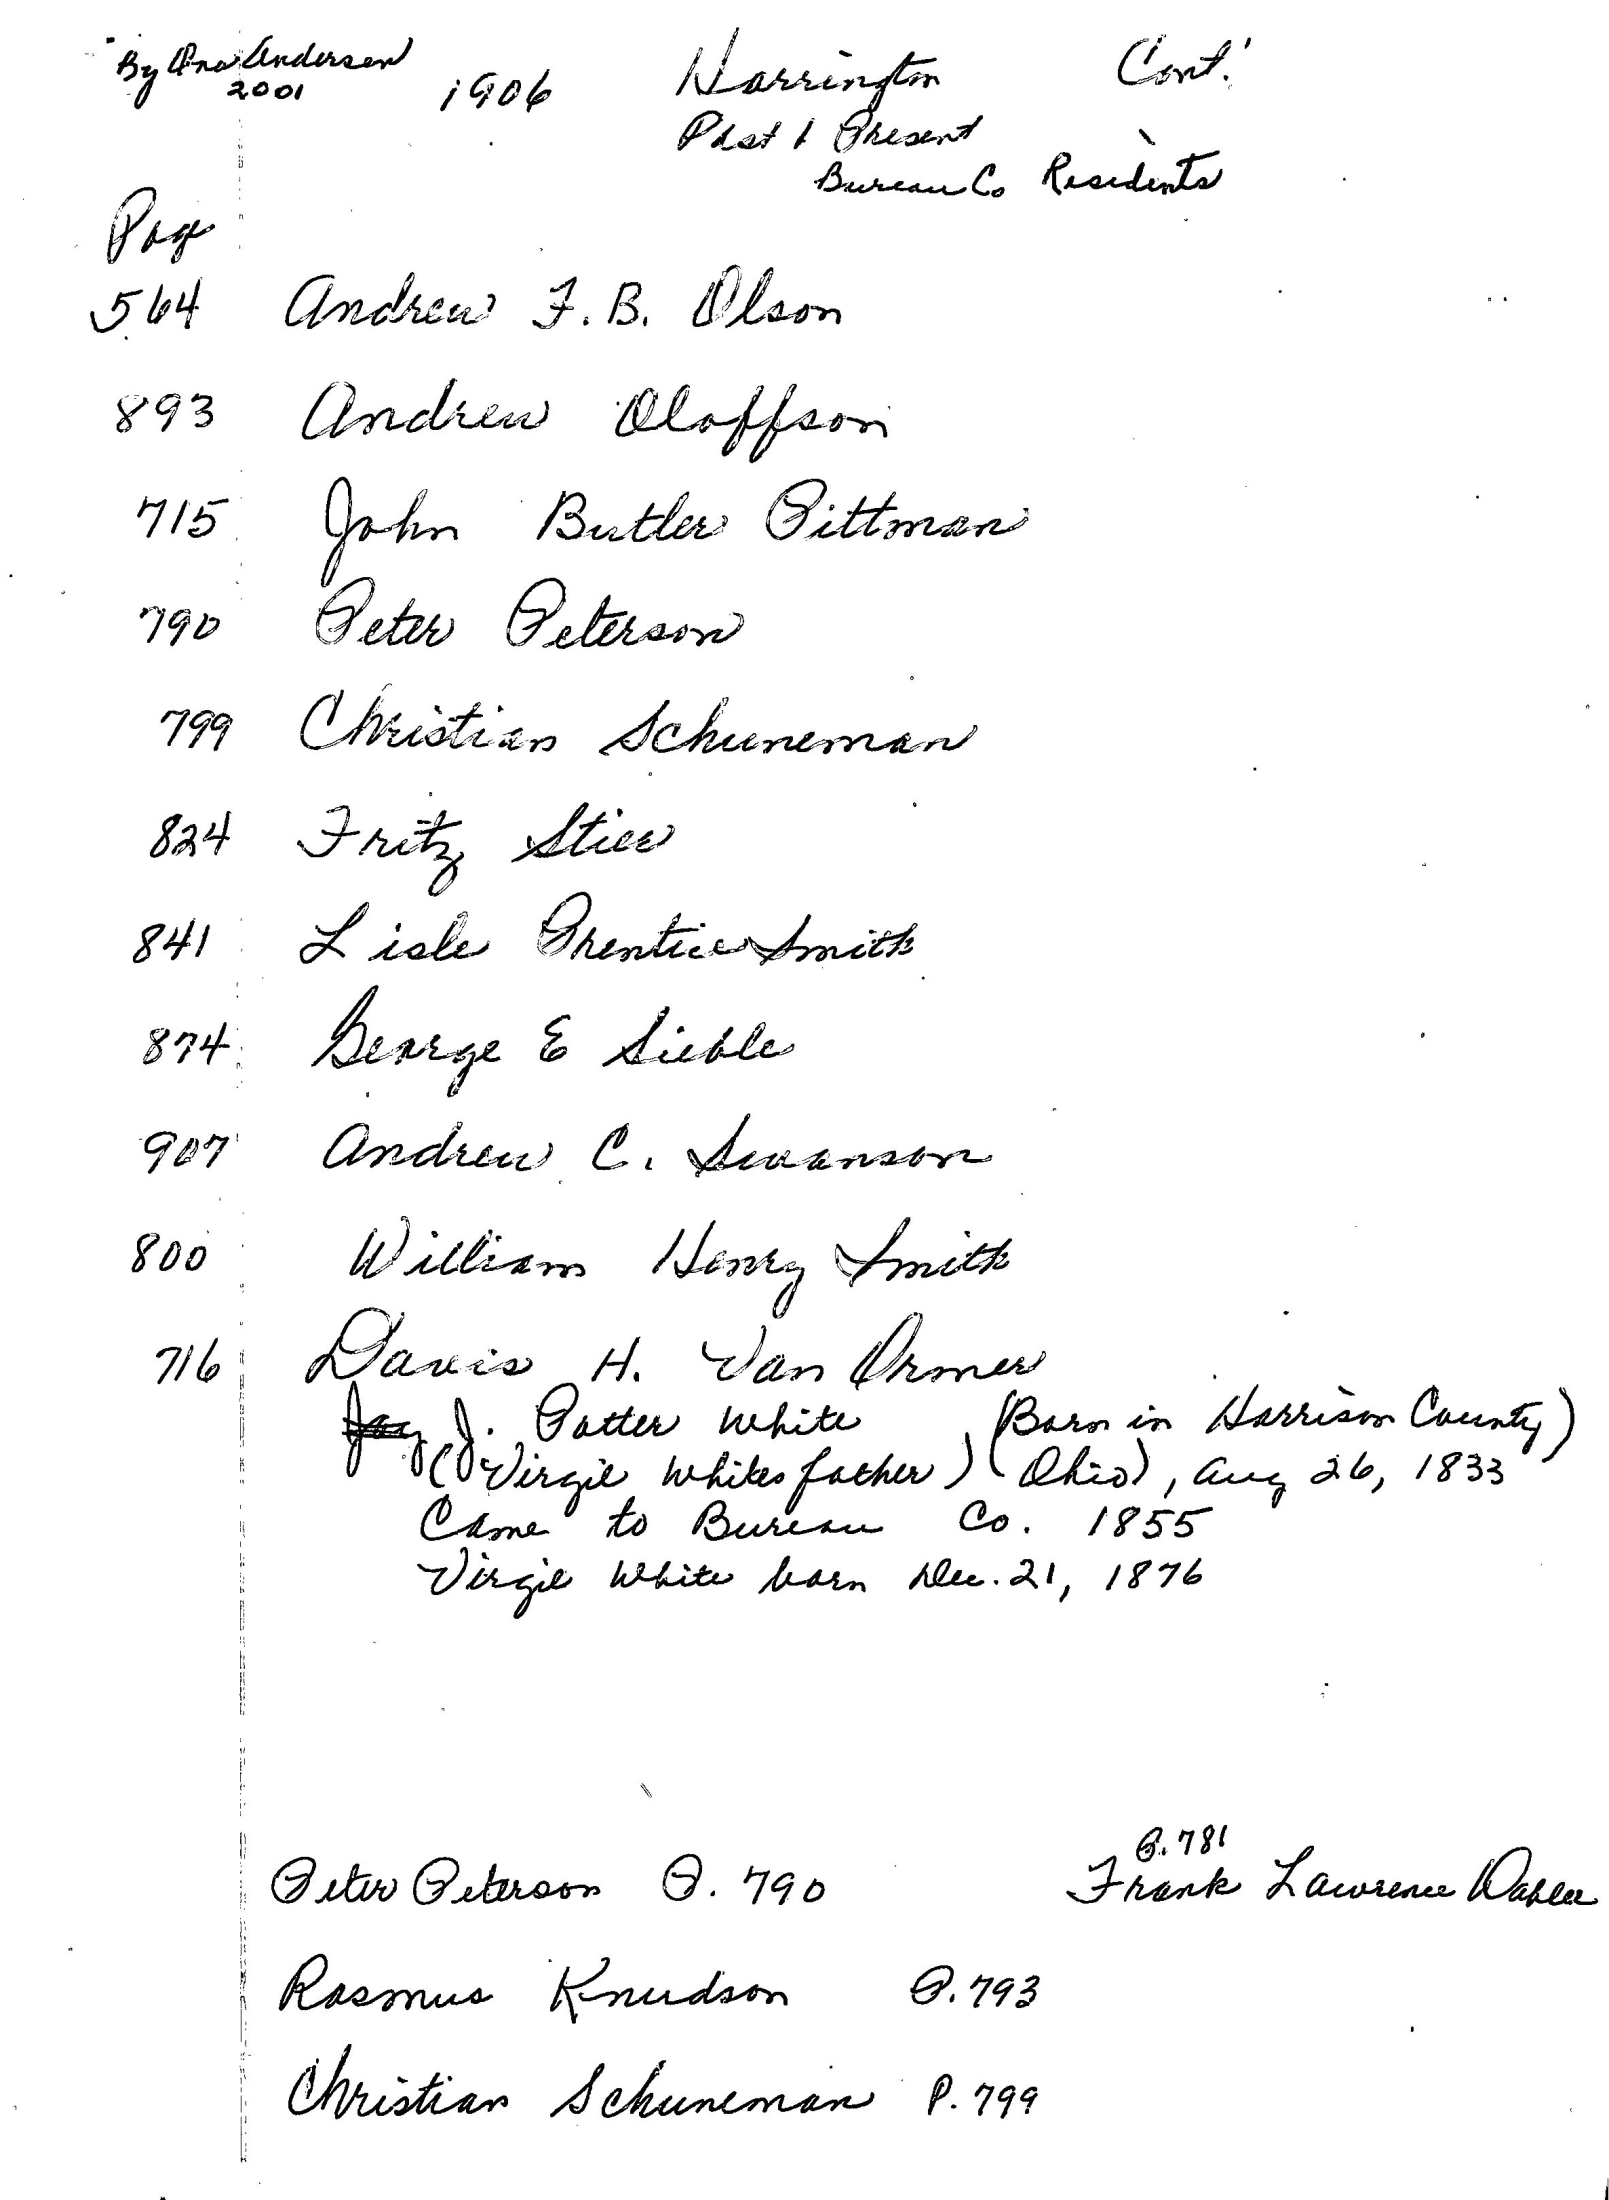 By Ona Andersen
2001
1906 Harrington Cont.
Past & Present
Bureau Co Residents
Page
564 Andrew F. B. Olson
893 Andrew Oloffson
715 John Butler Pittman
790 Peter Peterson
799 Christian Schuneman
824 Fritz Stier
841 Lisle Prentice Smith
874 George E Sieble
907 Andrew C. Swanson
800 William Henry Smith
716 Davis H. Van Ormer
J. Potter White (Born in Harrison County)
(Virgil Whites father) (Ohio), Aug 26, 1833
Came to Bureau Co. 1855
Virgil White born Dec. 21, 1876
P. 781
Peter Peterson P. 790 Frank Lawrence Dabler
Rasmus Knudson P. 793
Christian Schuneman P. 799